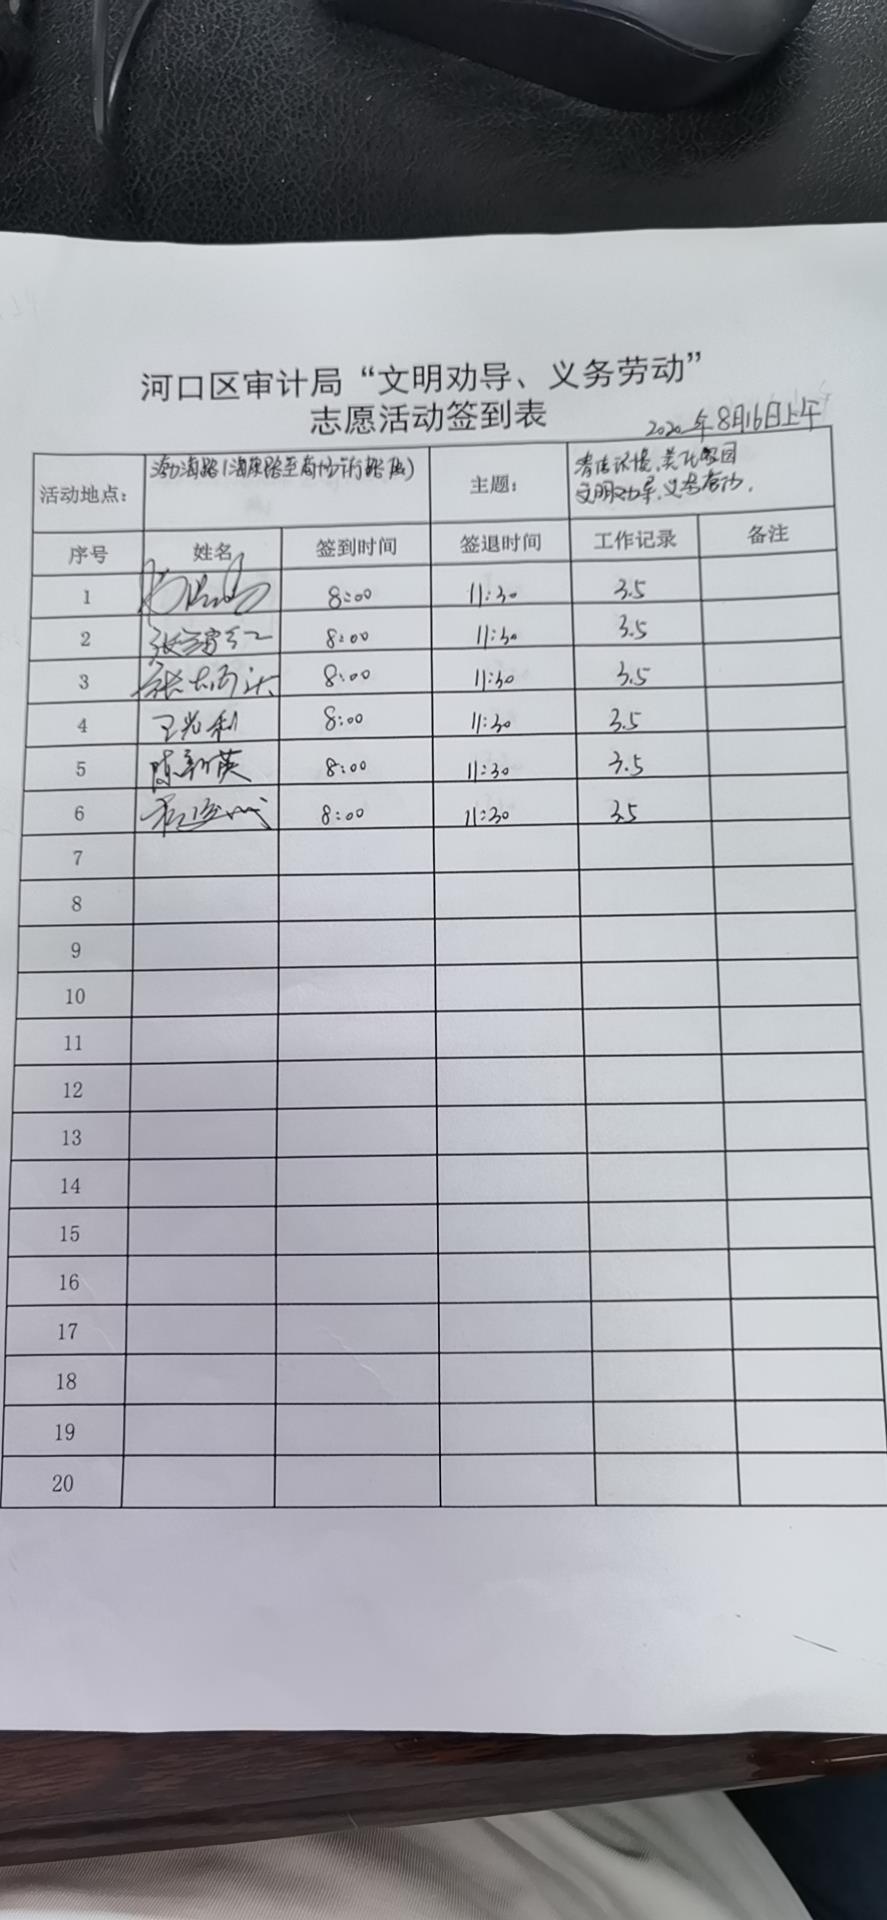 河口区审计局“文明劝导、义务劳动”
志愿活动签到表
2020年8月16日上午
活动地点: 渤海路 主题: 清洁环境,美化家园
文明劝导,义务劳动.
序号 姓名 签到时间 签退时间 工作记录 备注
1 8:00 11:30 3.5
2 8:00 11:30 3.5
3 8:00 11:30 3.5
4 8:00 11:30 3.5
5 陈新英 8:00 11:30 3.5
6 8:00 11:30 3.5
7
8
9
10
11
12
13
14
15
16
17
18
19
20